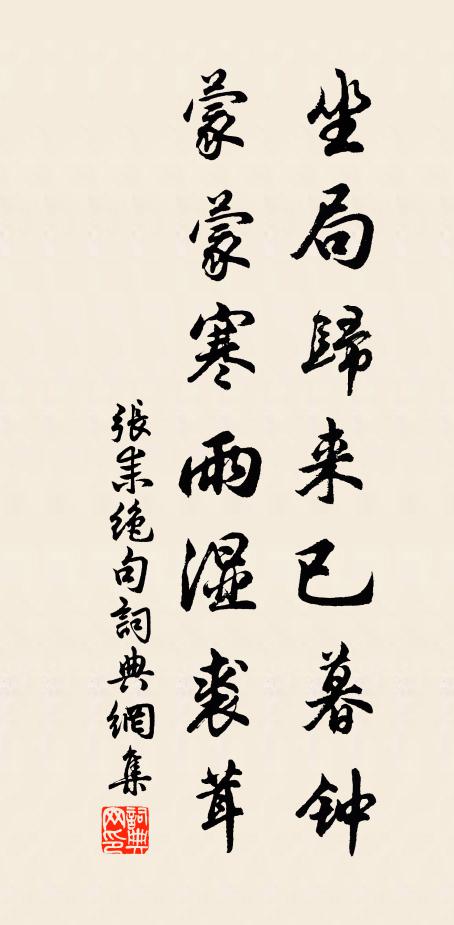 坐局歸来已暮钟
蒙蒙寒雨湿裘茸
張耒绝句詞典網集
詞典网印